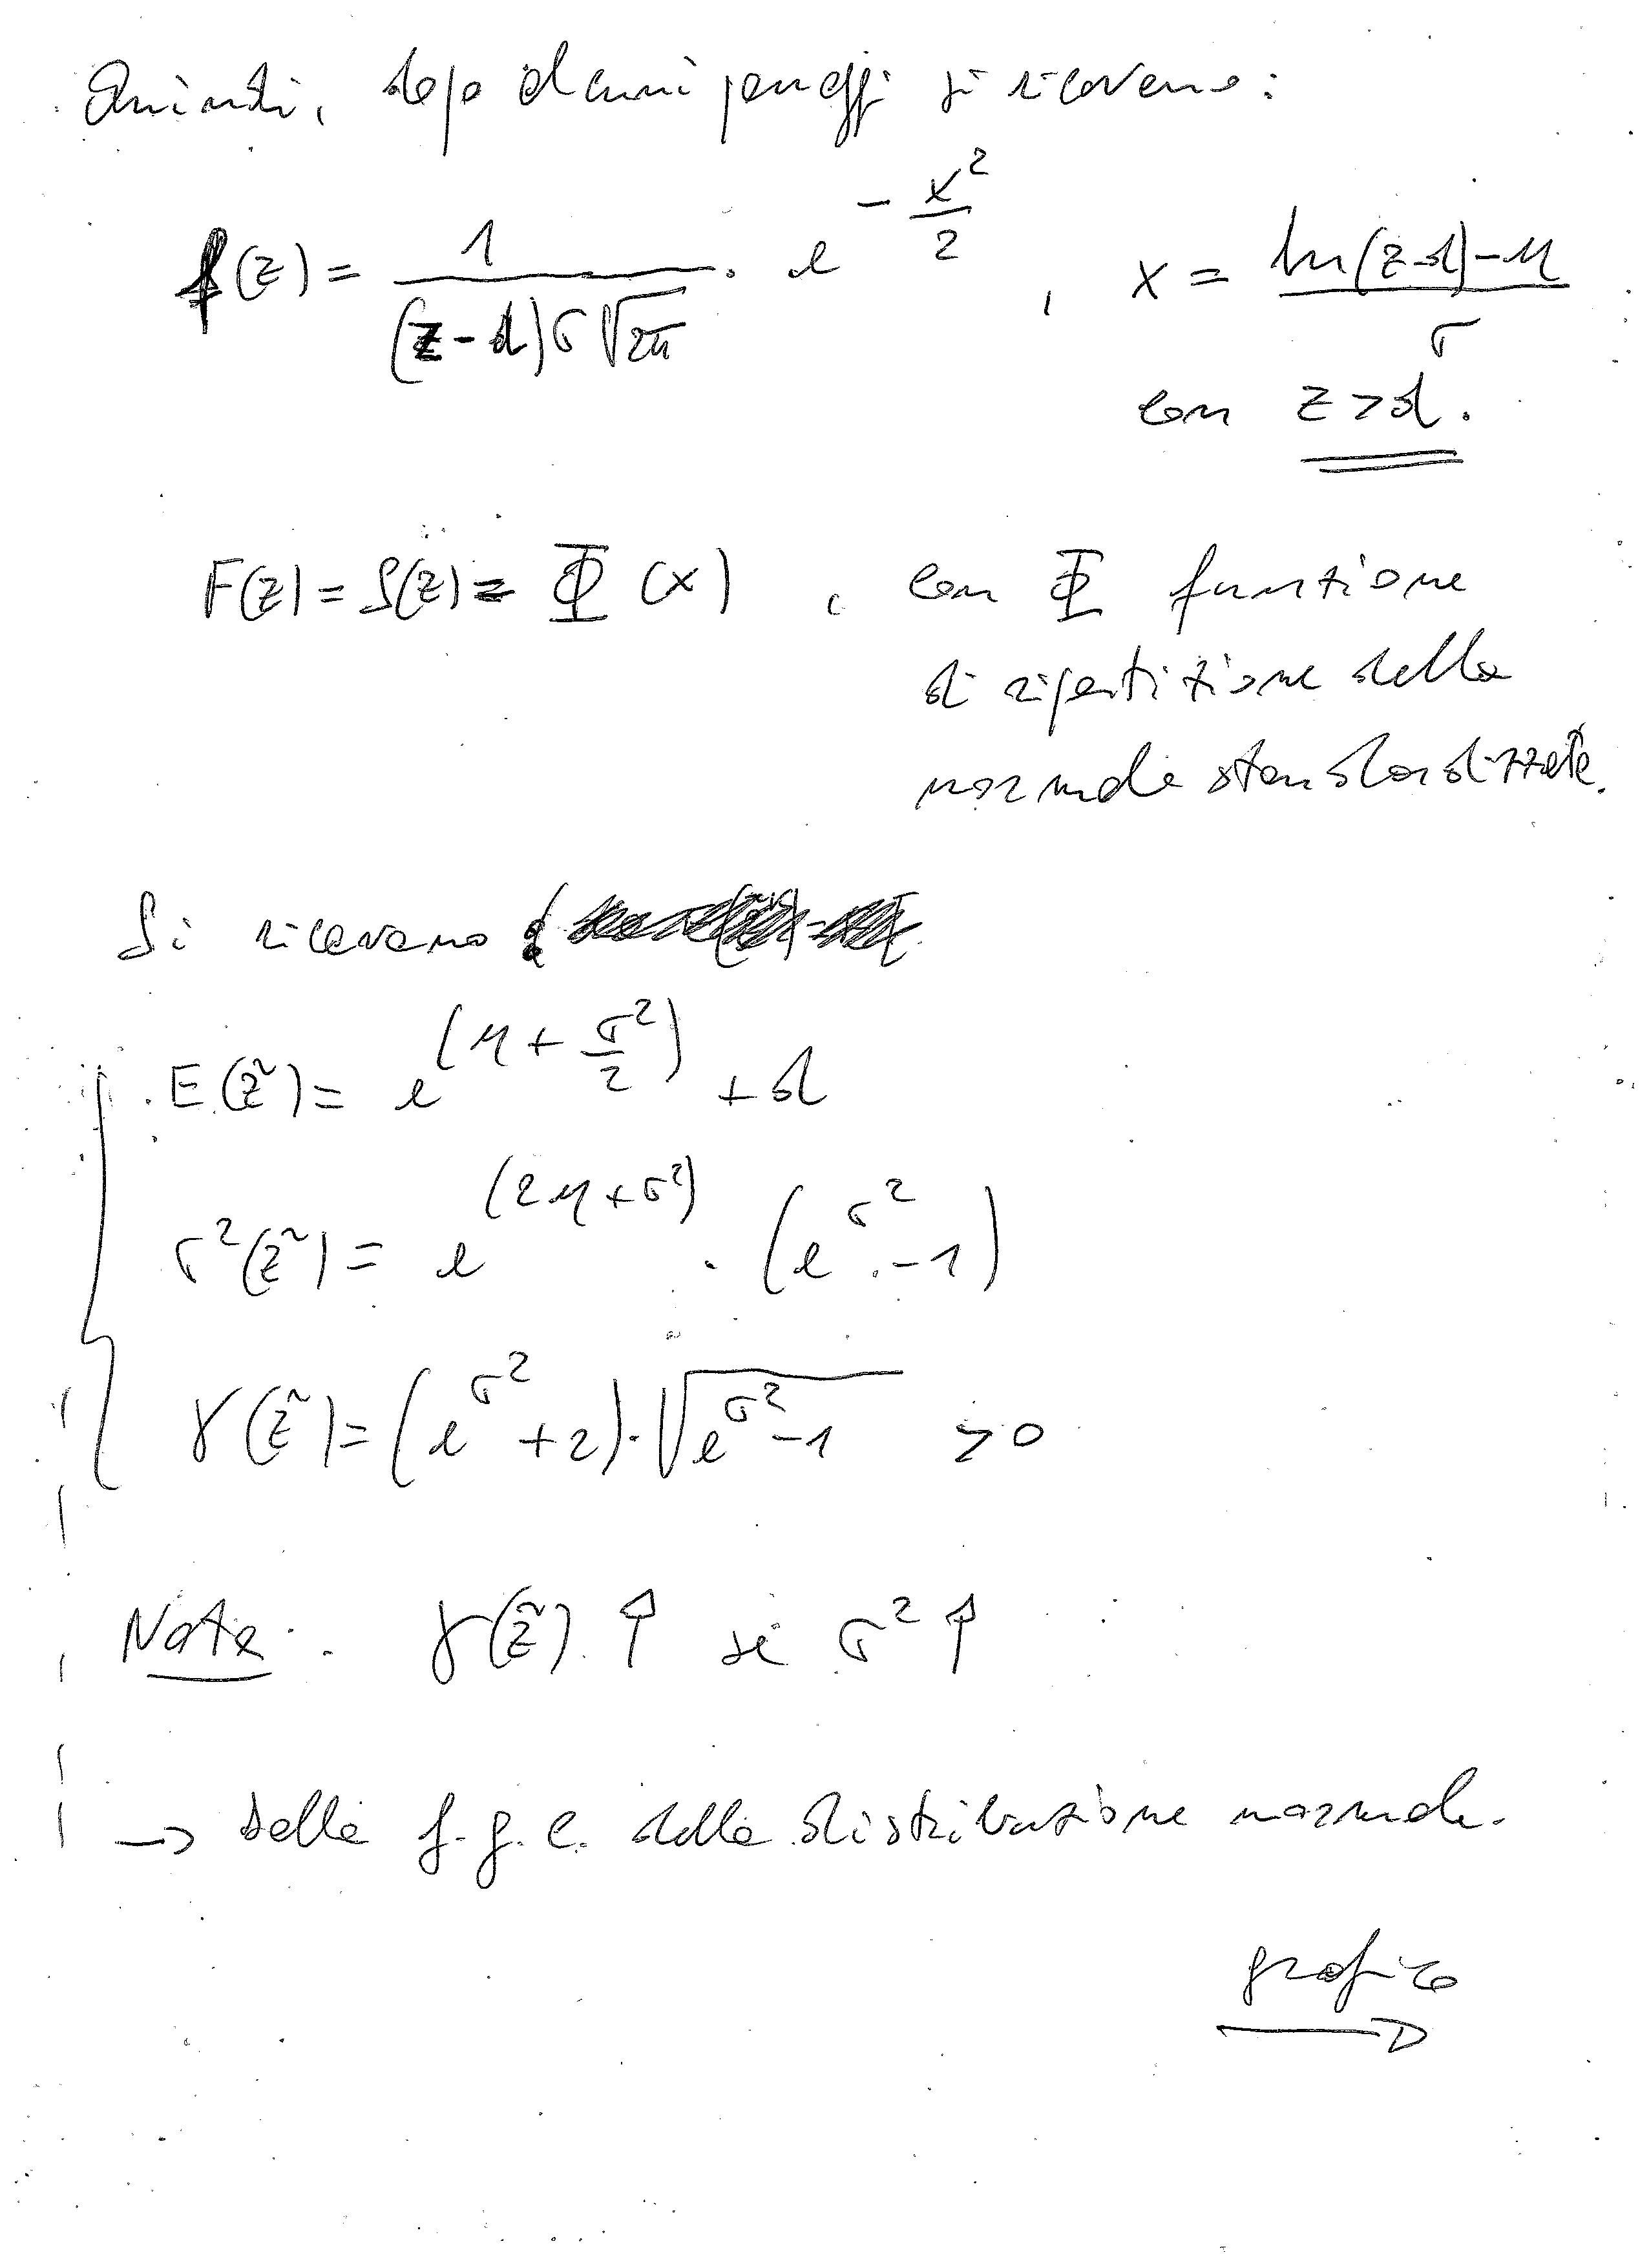 Quindi, dopo alcuni passaggi si ricavano:
f(z) = 1 / ((z-d)σ√2π) · e^(-x²/2) , x = (ln(z-d)-μ) / σ
con z>d.
F(z) = S(z) = Φ (x) , con Φ funzione
di ripartizione della
normale standardizzata.
Si ricavano
E(z̃) = e^(μ + σ²/2) + d
σ²(z̃) = e^(2μ+σ²) · (e^σ² - 1)
γ(z̃) = (e^σ² + 2) · √(e^σ² - 1) > 0
Nota: γ(z̃) ↑ se σ² ↑
→ Dalla f.g.c. della distribuzione normale.
grafico
→